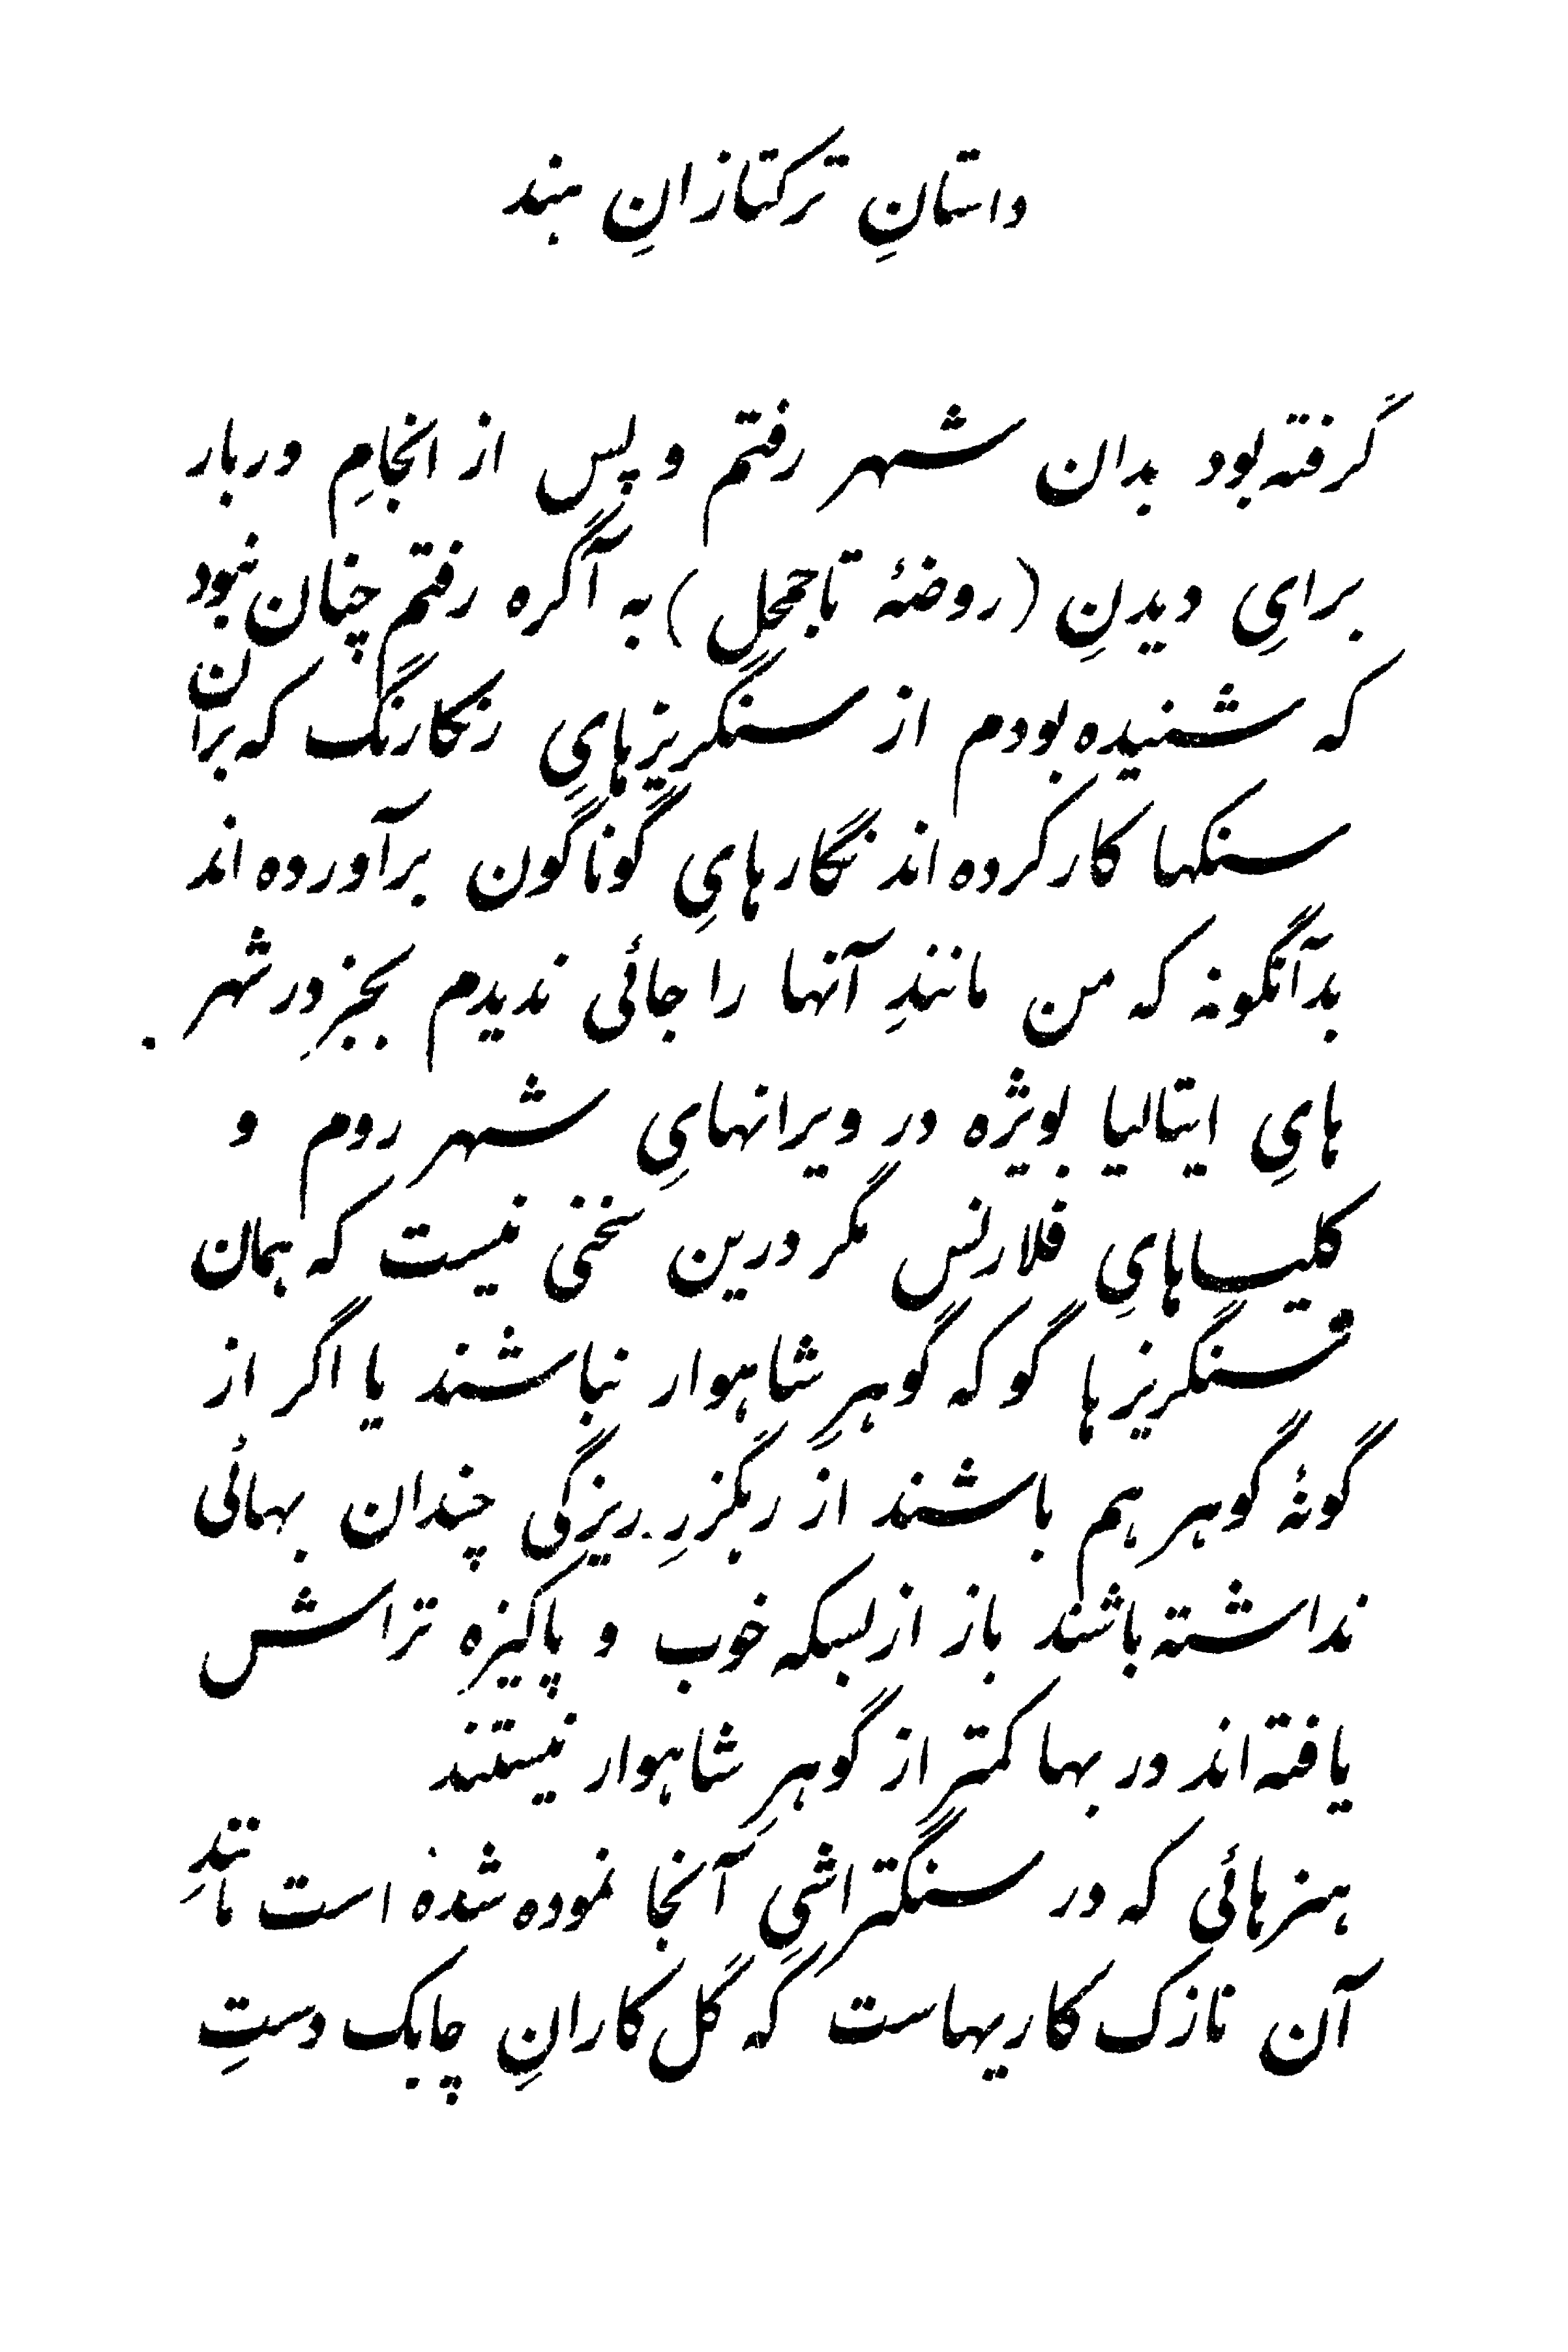 داستانِ ترکتازانِ هند
گرفته بود بدان شهر رفتم و پس از انجامِ دربار
برایِ دیدنِ (روضهٔ تاجمحل) به آگره رفتم چنان نبود
که شنیده بودم از سنگریزهایِ رنگارنگ که بران
سنگها کار کرده اند نگارهایِ گوناگون برآورده اند
بدآنگونه که من مانندِ آنها را جائی ندیدم بجزِ در شهر
هایِ ایتالیا بویژه در ویرانهایِ شهر روم و
کلیساهایِ فلارنس مگر درین سخنی نیست که همان
سنگریزها گو که گوهرِ شاهوار نباشند یا اگر از
گونهٔ گوهر هم باشند از رهگزرِ ریزگی چندان بهائی
نداشته باشند باز از بسکه خوب و پاکیزهِ تراش
یافته اند در بها کمتر از گوهرِ شاهوار نیستند
هنرهائی که در سنگتراشیِ آنجا نموده شده است مانندِ
آن نازک کاریهاست که گل کارانِ چابک دستِ